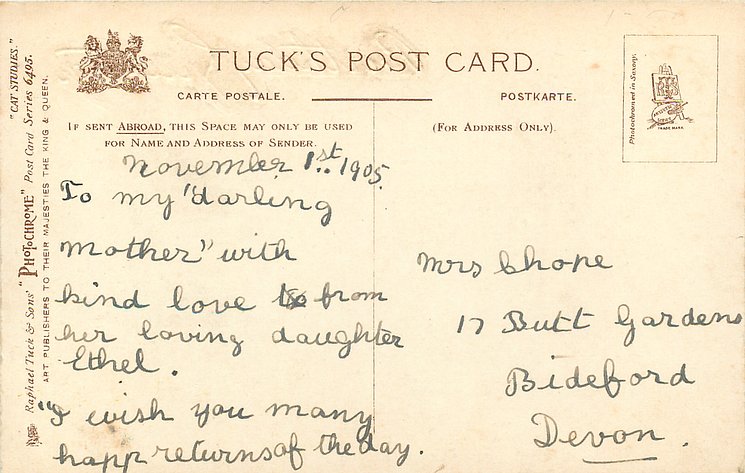 TUCK'S POST CARD.
CARTE POSTALE. POSTKARTE.
IF SENT ABROAD, THIS SPACE MAY ONLY BE USED
FOR NAME AND ADDRESS OF SENDER.
(FOR ADDRESS ONLY).
Photochromed in Saxony.
TRADE MARK
"CAT STUDIES."
Raphael Tuck & Sons' "PHOTOCHROME" Post Card Series 6495.
ART PUBLISHERS TO THEIR MAJESTIES THE KING & QUEEN.
November 1st. 1905.
To my "darling
mother" with
kind love from
her loving daughter
Ethel.
"I wish you many
happ returns of the day.
Mrs Chope
17 Butt Gardens
Bideford
Devon.